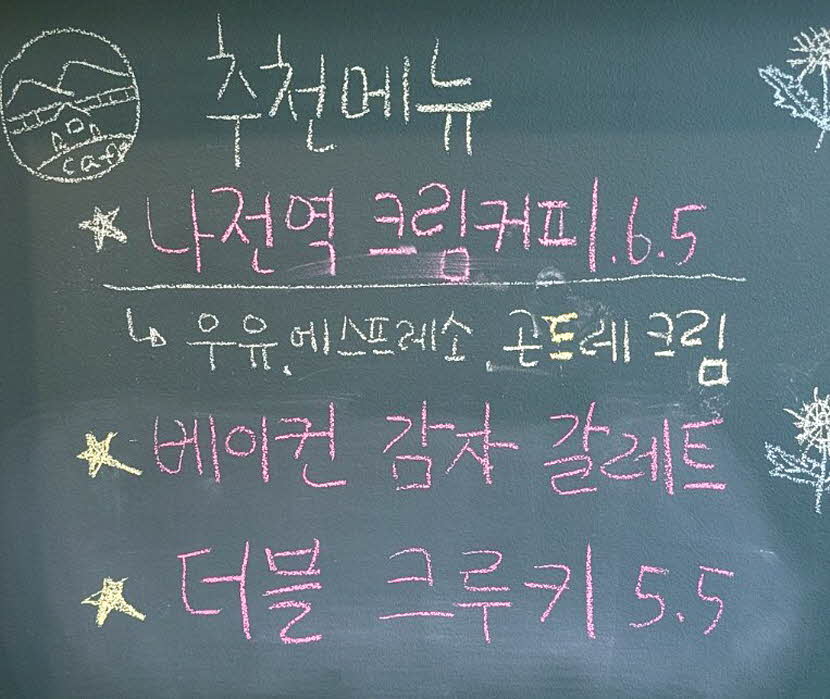 cafe
추천메뉴
나전역 크림커피.6.5
↳ 우유, 에스프레소, 곤드레 크림
베이컨 감자 갈레트
더블 크루키 5.5